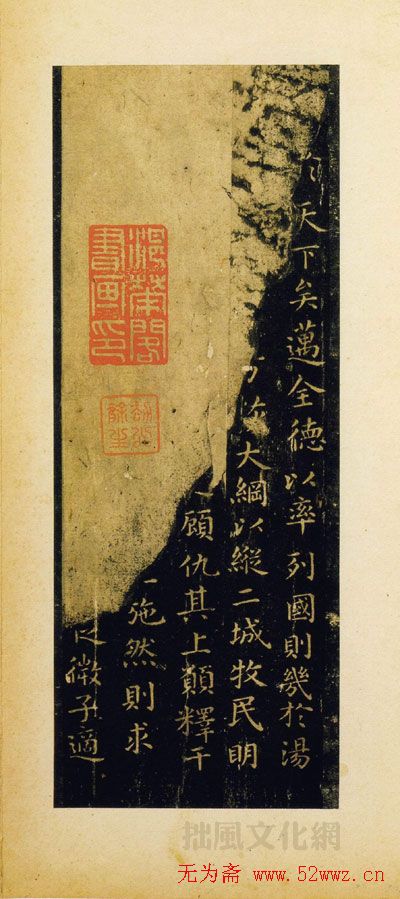 天下矣邁全德以率列國則幾於湯
大綱以縱二城牧民明
顧仇其上願釋干
施然則求
微子適
書畫印
拙風文化網
无为斋 www.52wwz.cn